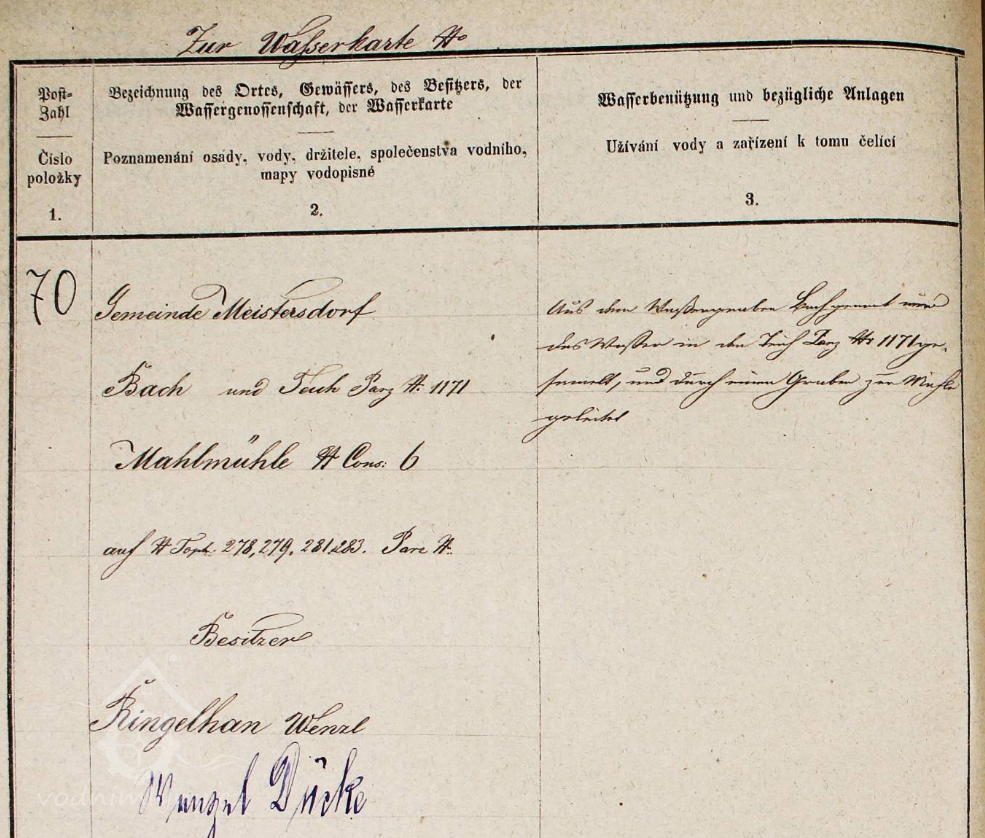 Zur Wasserkarte No
Post-
Zahl
Číslo
položky
1.
Bezeichnung des Ortes, Gewässers, des Besitzers, der
Wassergenossenschaft, der Wasserkarte
Poznamenání osady, vody, držitele, společenstva vodního,
mapy vodopisné
2.
Wasserbenützung und bezügliche Anlagen
Užívání vody a zařízení k tomu čelící
3.
70
Gemeinde Meistersdorf
Bach und Teich Parz No 1171
Mahlmühle No Cons: 6
auf No Top. 278, 279, 281, 283. Parz No
Besitzer
Ringelhan Wenzl
Wenzel Dücke
Aus dem Wassergraben Bach genant wird
das Wasser in den Teich Parz No 1171 ge-
samelt, und durch einen Graben zur Mühle
geleitet
vodním